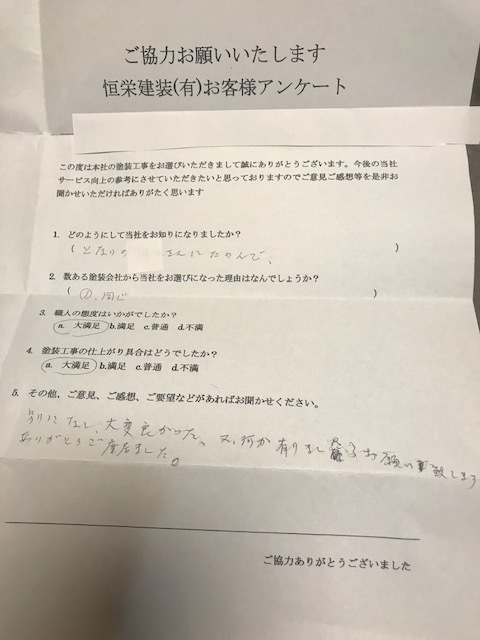 ご協力お願いいたします
恒栄建装(有)お客様アンケート
この度は本社の塗装工事をお選びいただきまして誠にありがとうございます。今後の当社
サービス向上の参考にさせていただきたいと思っておりますのでご意見ご感想等を是非お
聞かせいただければありがたく思います
1. どのようにして当社をお知りになりましたか？
( となりの さんにたのんで、 )
2. 数ある塗装会社から当社をお選びになった理由はなんでしょうか？
( ①、同じ )
3. 職人の態度はいかがでしたか？
a. 大満足 b.満足 c.普通 d.不満
4. 塗装工事の仕上がり具合はどうでしたか？
a. 大満足 b.満足 c.普通 d.不満
5. その他、ご意見、ご感想、ご要望などがあればお聞かせください。
別になし、大変良かった、又、何か有りましたらお願い致します
ありがとうご座居ました。
ご協力ありがとうございました